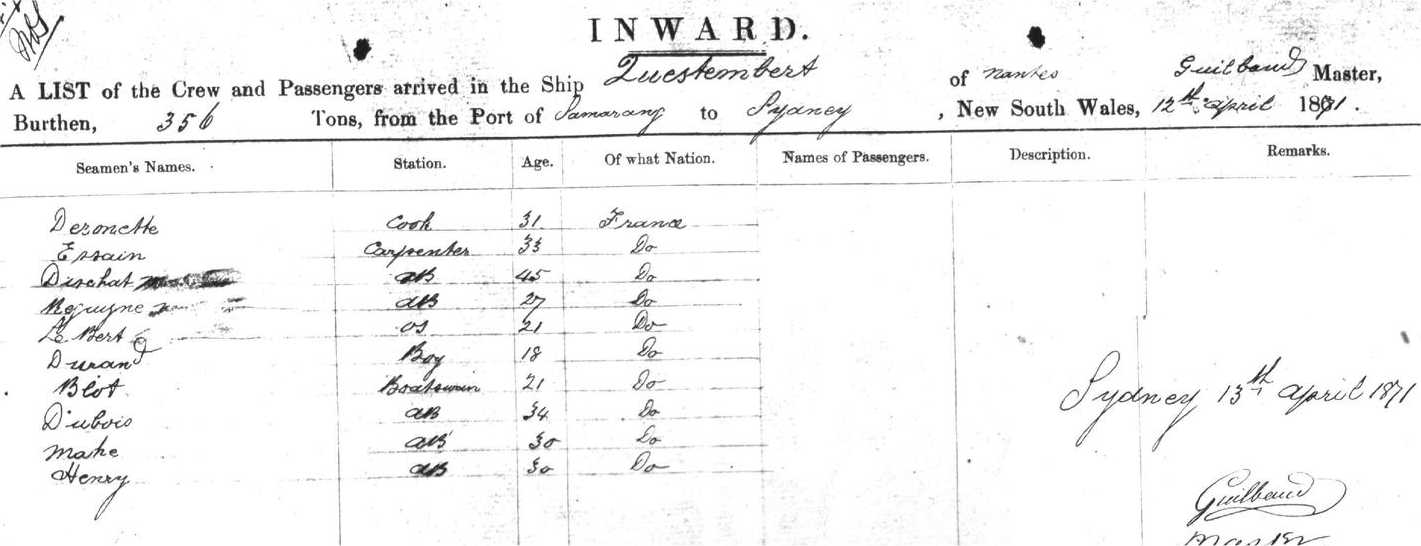 INWARD.
A LIST of the Crew and Passengers arrived in the Ship Questembert of Nantes Guilbaud Master,
Burthen, 356 Tons, from the Port of Samarang to Sydney, New South Wales, 12th April 1871.
Seamen's Names. Station. Age. Of what Nation. Names of Passengers. Description. Remarks.
Deronette Cook 31 France
Essain Carpenter 33 Do
Dischat AB 45 Do
AB 27 Do
Le Bert OS 21 Do
Durand Boy 18 Do
Blot Boatswain 21 Do
Dubois AB 34 Do
Mahe AB 30 Do
Henry AB 30 Do
Sydney 13th April 1871
Guilbaud
Master